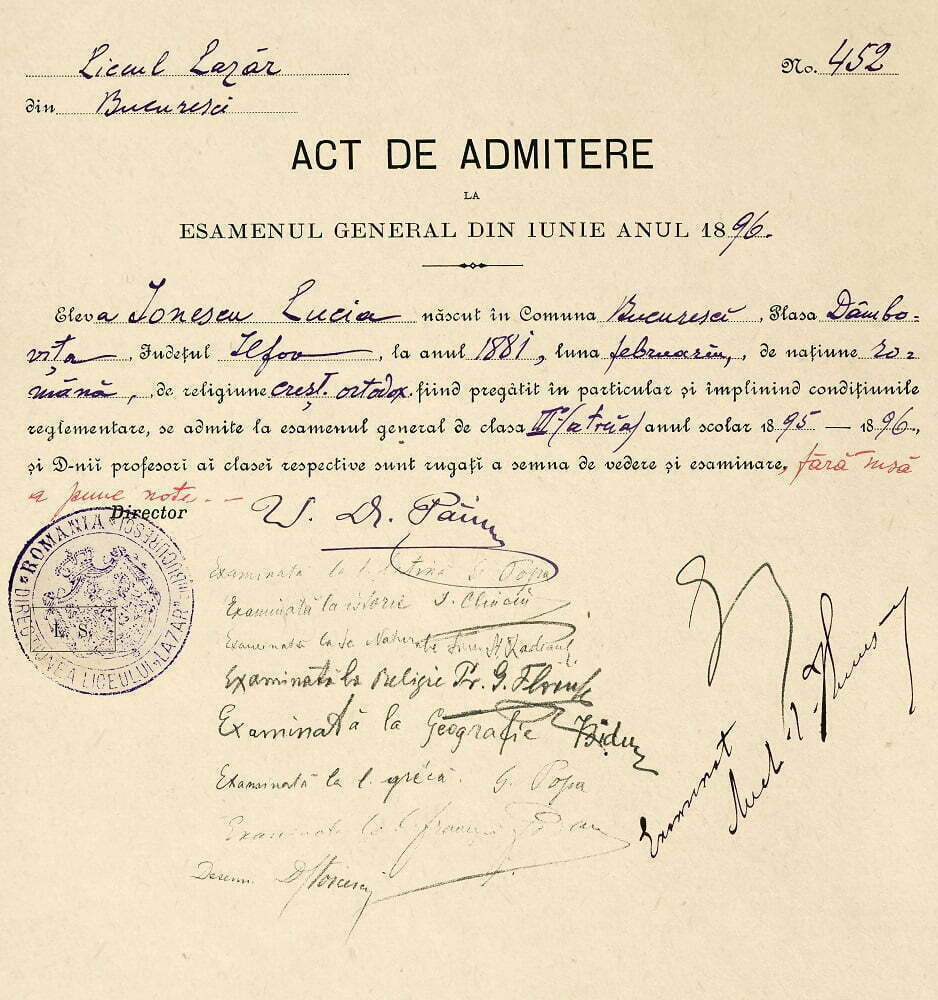 Liceul Lazăr No. 452
din Bucuresci
ACT DE ADMITERE
LA
ESAMENUL GENERAL DIN IUNIE ANUL 1896.
Eleva Ionescu Lucia născut în Comuna Bucuresci, Plasa Dâmbo-
vița, Județul Ilfov, la anul 1881, luna februariu, de națiune ro-
mână, de religiune creșt. ortodox fiind pregătit în particular și împlinind condițiunile
reglementare, se admite la esamenul general de clasa III (a treia) anul scolar 1895 — 1896,
și D-nii profesori ai clasei respective sunt rugați a semna de vedere și esaminare, fără însă
a pune note. -
Director
ROMANIA
DIRECȚIUNEA LICEULUI LAZAR BUCURESCI
L. S.
Examinată la l. latină G. Popa
Examinată la istorie
Examinată la Sc. Naturale
Examinată la Religie Pr. G.
Examinată la Geografie
Examinată la l. grécă. G. Popa
Examinată la l. franceză
Desemn
Examinat